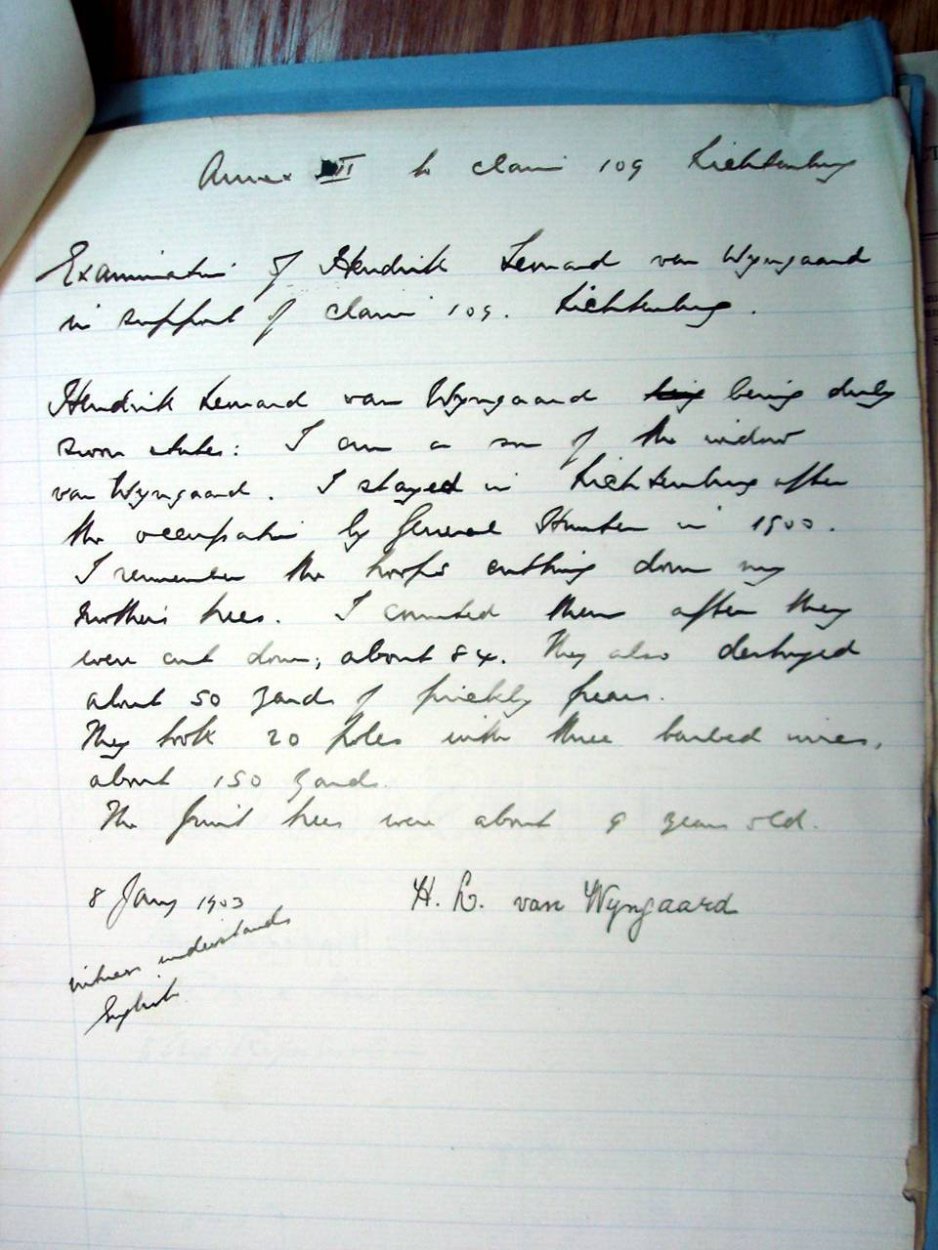 Annex III to claim 109 Lichtenburg
Examination of Hendrik Lennard van Wyngaard
in support of claim 109. Lichtenburg.
Hendrik Lennard van Wyngaard being duly
sworn states: I am a son of the widow
van Wyngaard. I stayed in Lichtenburg after
the occupation by General Hunter in 1900.
I remember the troops cutting down my
mother's trees. I counted them after they
were cut down; about 84. They also destroyed
about 50 yards of prickly pears.
They took 20 poles with three barbed wires,
about 150 yards.
The fruit trees were about 9 years old.
8 Jany 1903
H. L. van Wyngaard
witness understands
English